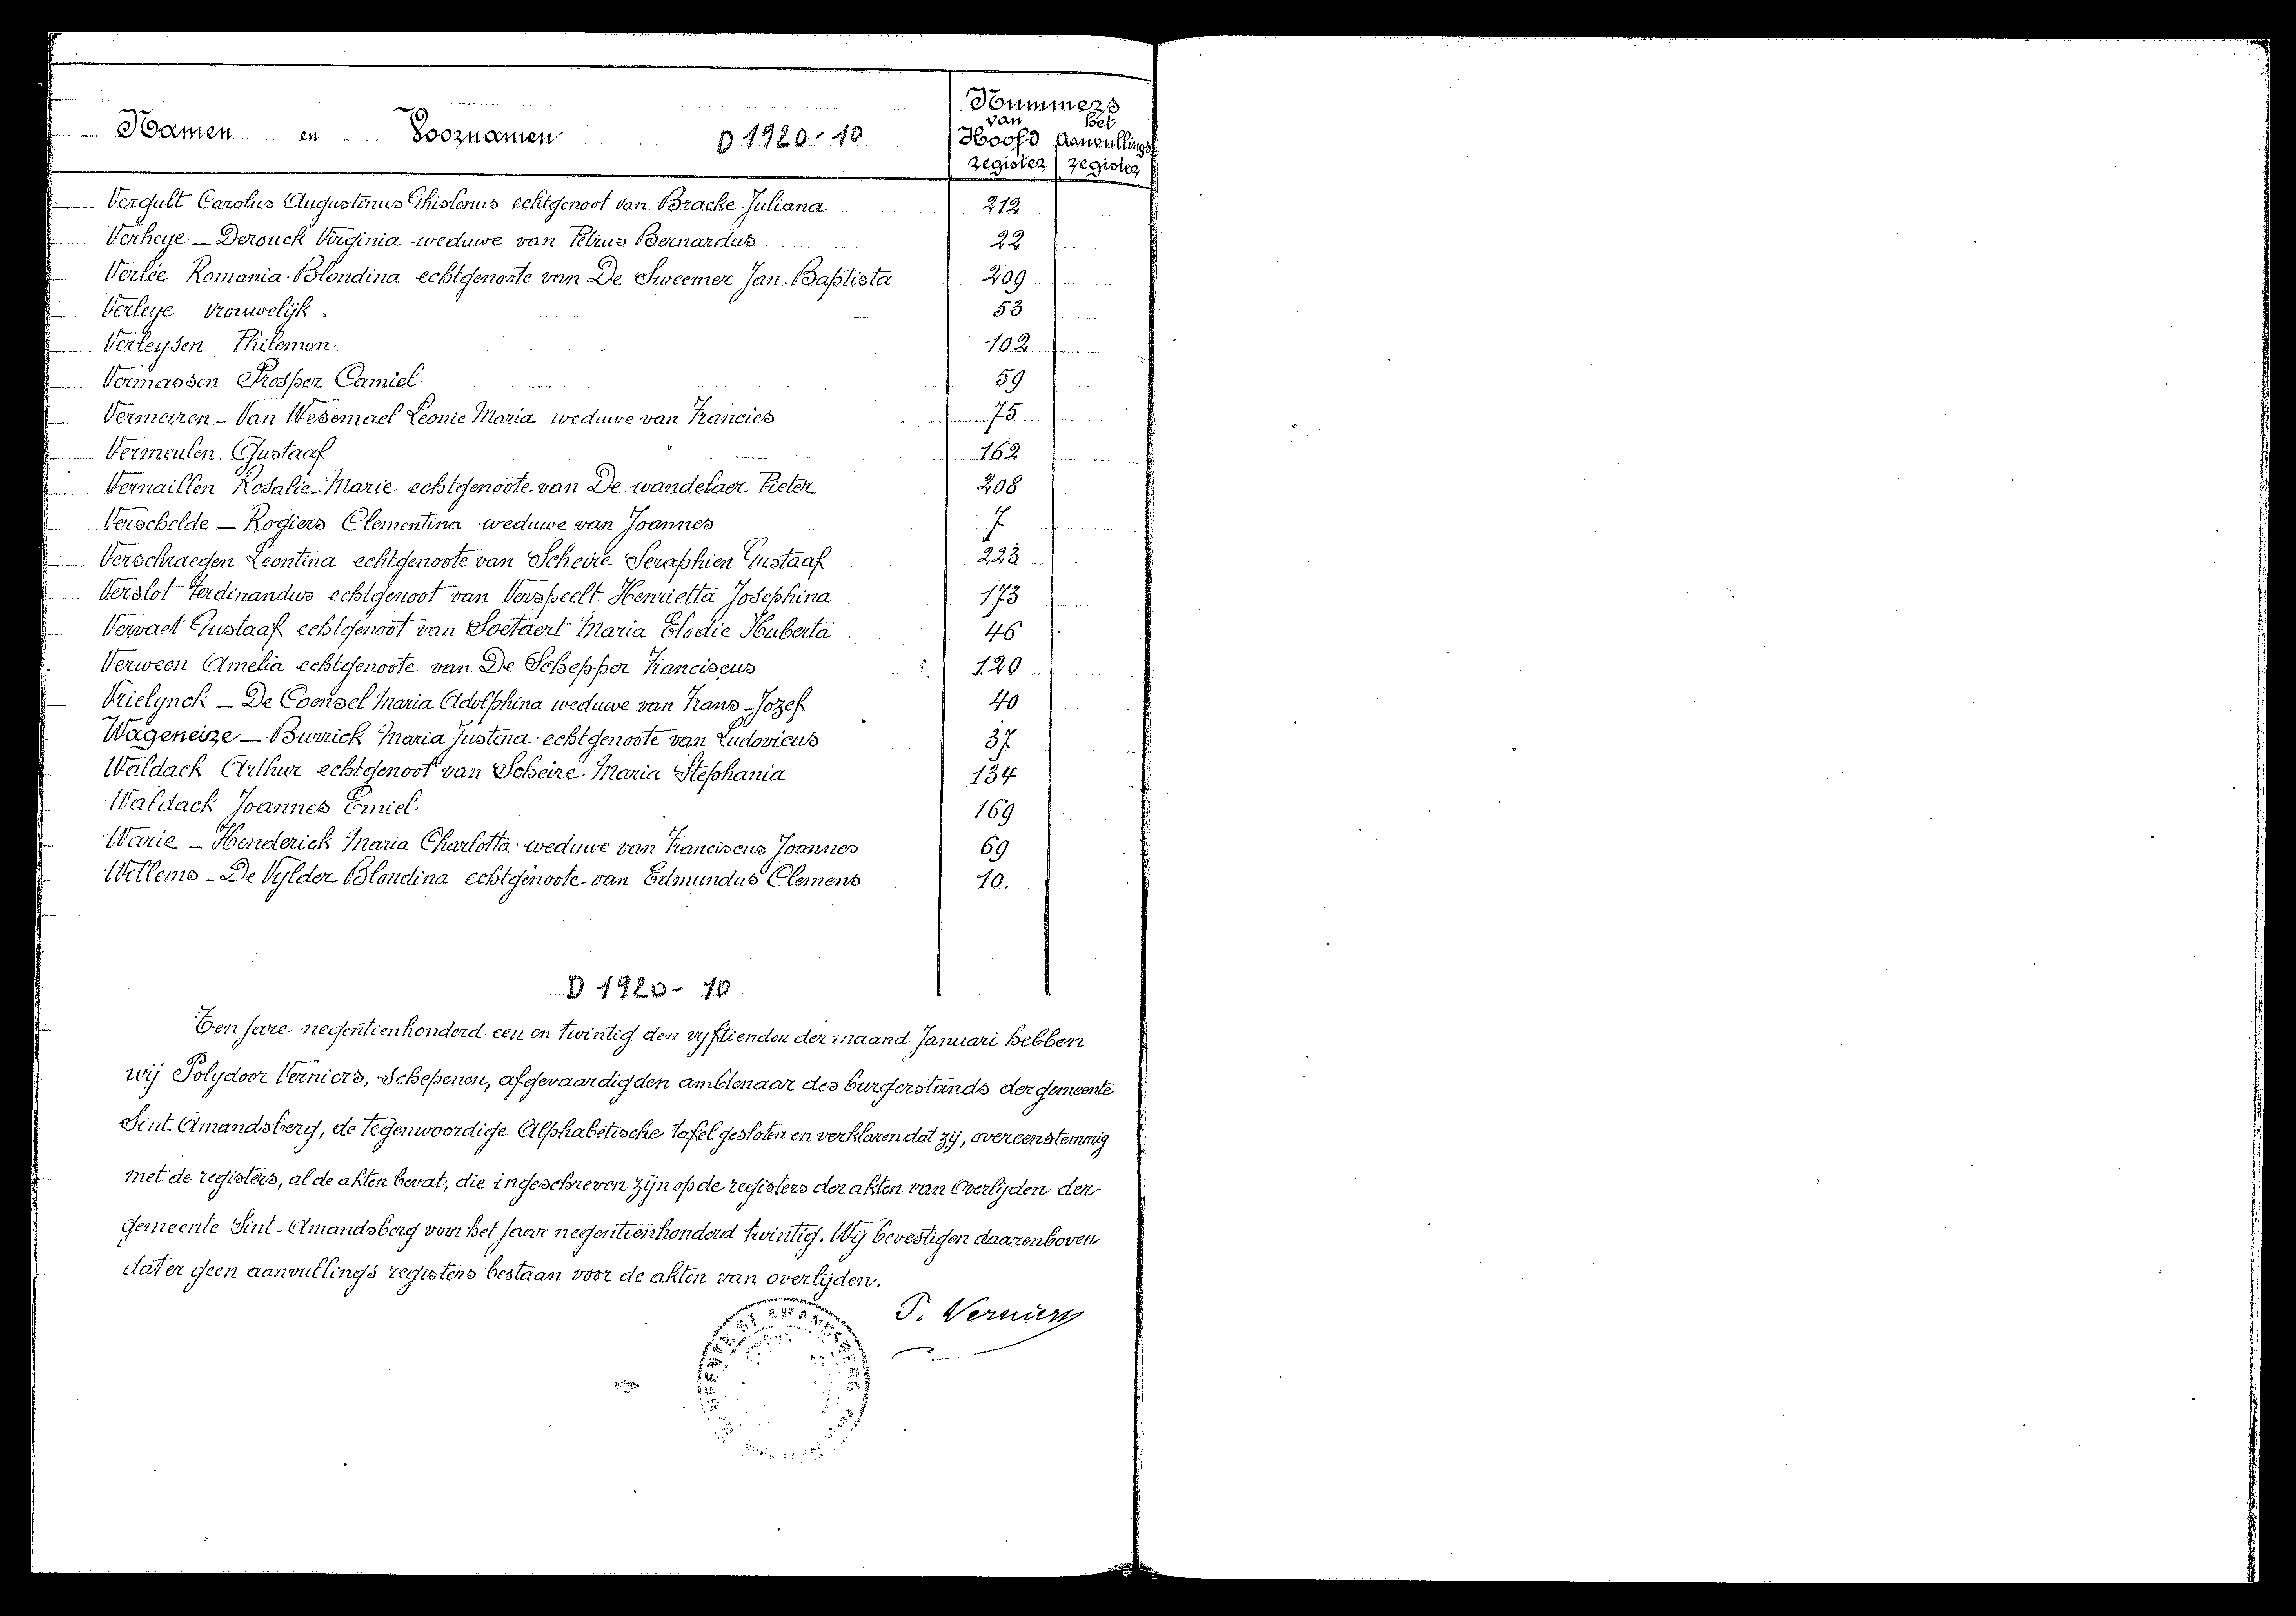 Nummers
van het
Namen en Voornamen D 1920-10 Hoofd Aanvullings
register register
Vergult Carolus Augustinus Ghislenus echtgenoot van Bracke Juliana 212
Verheye - Derouck Virginia weduwe van Petrus Bernardus 22
Verlée Romania Blondina echtgenoote van De Sweemer Jan-Baptista 209
Verleye vrouwelijk. 53
Verleysen Philemon. 102
Vermassen Prosper Camiel 59
Vermeiren - Van Wesemael Leonie Maria weduwe van Francies 75
Vermeulen Gustaaf 162
Vernaillen Rosalie-Marie echtgenoote van De wandelaer Pieter 208
Verschelde - Rogiers Clementina weduwe van Joannes 7
Verschraegen Leontina echtgenoote van Scheire Seraphien Gustaaf 223
Verslot Ferdinandus echtgenoot van Verspeelt Henrietta Josephina 173
Vervaet Gustaaf echtgenoot van Soetaert Maria Elodie Huberta 46
Verween Amelia echtgenoote van De Schepper Franciscus 120
Vrielynck - De Coensel Maria Adolphina weduwe van Frans-Jozef 40
Wageneire - Burrick Maria Justina echtgenoote van Ludovicus 37
Waldack Arthur echtgenoot van Scheire Maria Stephania 134
Waldack Joannes Emiel. 169
Warie - Henderick Maria Charlotta weduwe van Franciscus Joannes 69
Willems - De Vylder Blondina echtgenoote van Edmundus Clemens 10.
D 1920-10
Ten jare negentienhonderd een en twintig den vyftienden der maand Januari hebben
wij Polydoor Verniers, Schepenen, afgevaardigden ambtenaar des burgerstands der gemeente
Sint Amandsberg, de tegenwoordige Alphabetische tafel gesloten en verklaren dat zij, overeenstemmig
met de registers, al de akten bevat, die ingeschreven zijn op de registers der akten van Overlijden der
gemeente Sint-Amandsberg voor het jaar negentienhonderd twintig. Wij bevestigen daarenboven
dat er geen aanvullings registers bestaan voor de akten van overlijden.
P. Verniers